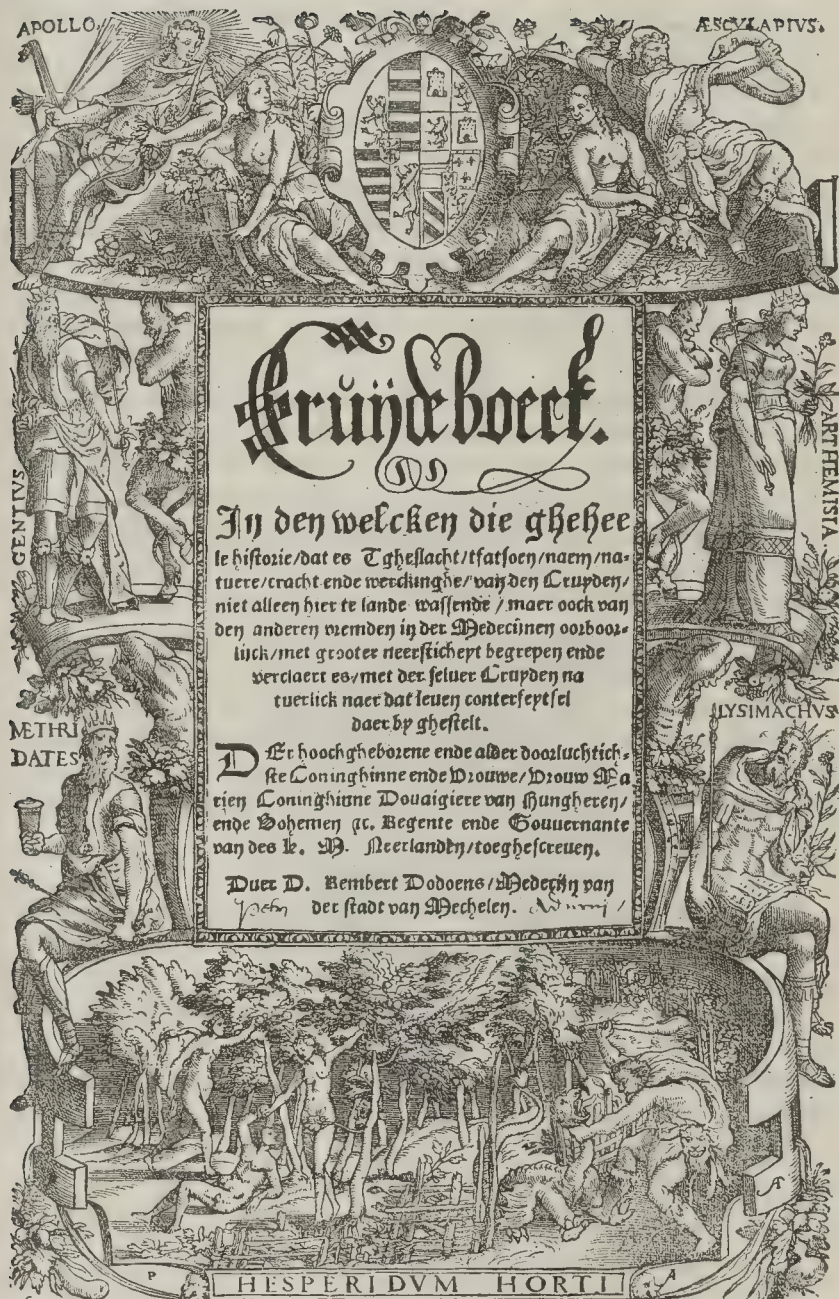 APOLLO.
ÆSCVLAPIVS.
GENTIVS
ARTHEMISIA
METHRI
DATES
LYSIMACHVS
Crůÿdeboeck.
In den welcken die gheheele
le historie/dat es Tgheslacht/tfatsoen/naem/na-
tuere/cracht ende werckinghe/van den Cruyden/
niet alleen hier te lande wassende/maer oock van
den anderen vremden in der Medecijnen oorboor-
lijck/met grooter neersticheyt begrepen ende
verclaert es/met der seluer Cruyden na
tuerlick naer dat leuen conterfeytsel
daer by ghestelt.
DEr hoochgheborene ende alder doorluchtich-
ste Coninghinne ende Vrouwe/Vrouw Ma
rien Coninghinne Douaigiere van Hungheren/
ende Bohemen ꝛc. Regente ende Gouuernante
van des K. M. Neerlanden/toeghescreuen.
Duer D. Rembert Dodoens/Medecijn van
der stadt van Mechelen.
Æ
P A
HESPERIDVM HORTI